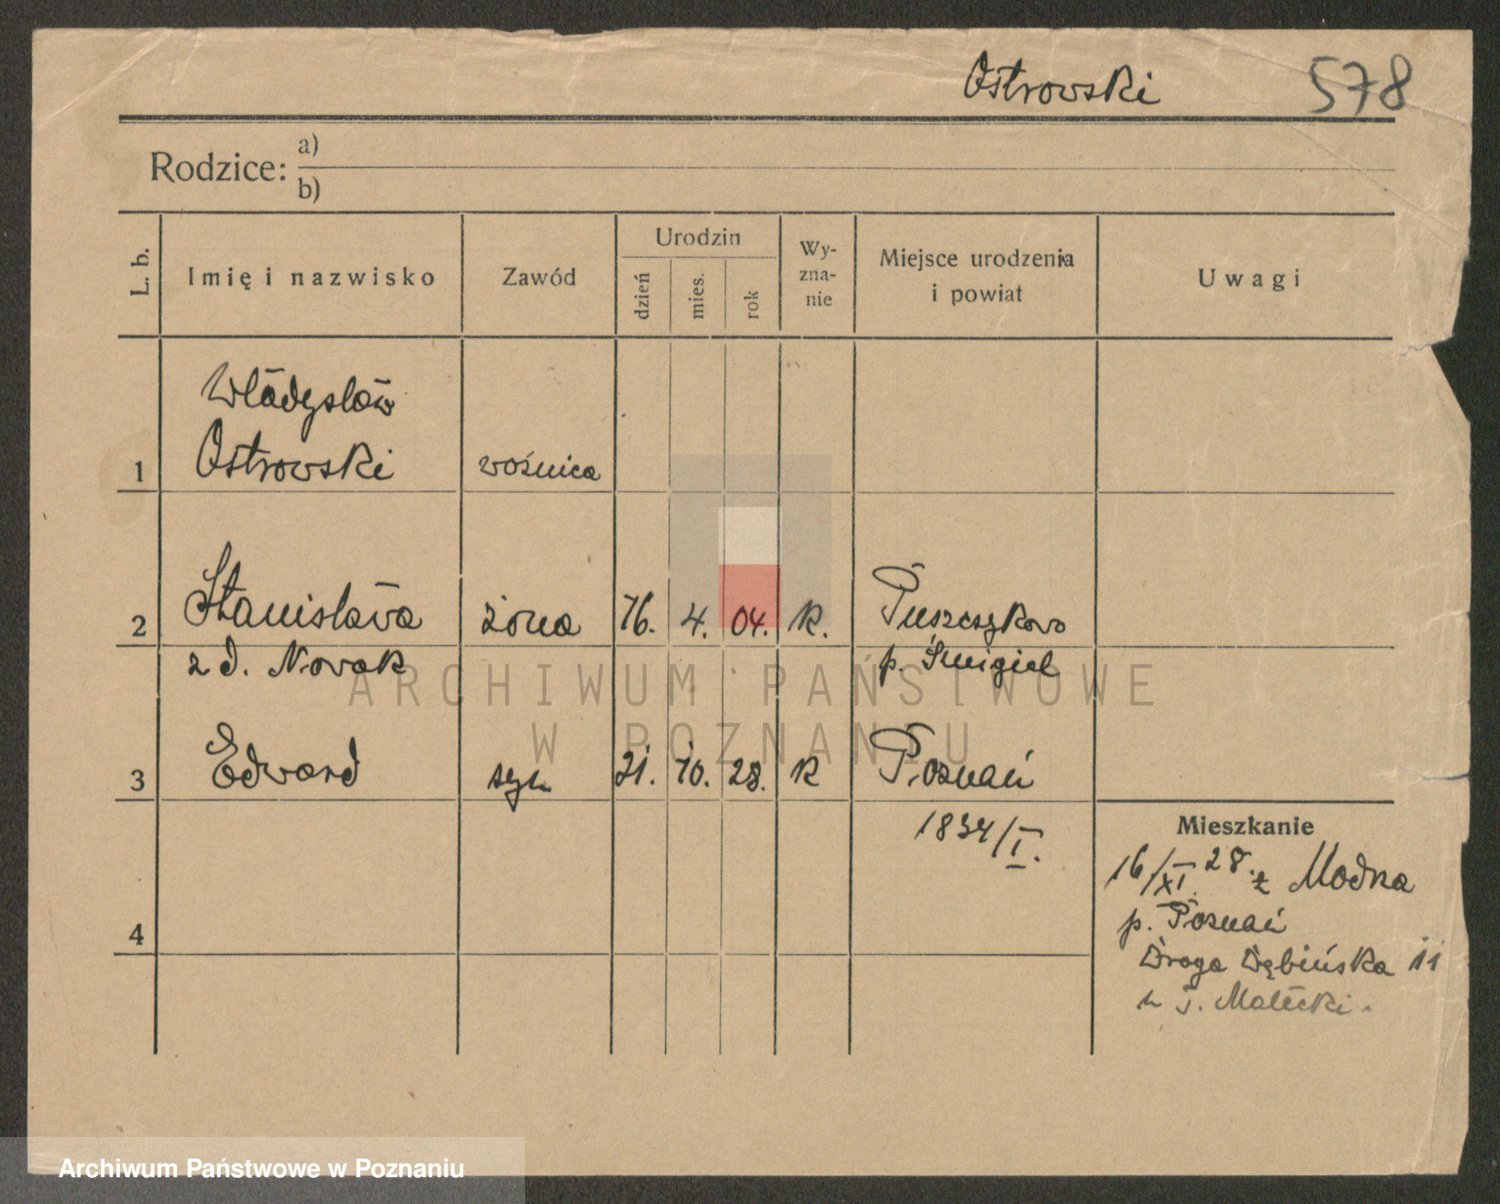 Ostrowski 578
Rodzice: a)
b)
L. b. Imię i nazwisko Zawód Urodzin dzień mies. rok Wy-zna-nie Miejsce urodzenia i powiat Uwagi
Władysław
1 Ostrowski woźnica
2 Stanisława żona 16. 4. 04. k. Puszczykowo
z d. Nowak p. Śmigiel
3 Edward syn 21. 10. 28. k Poznań
1834/I.
Mieszkanie
16/XI. 28. z
p. Poznań
4
Droga Dębińska 11
u J. Małecki.
ARCHIWUM PAŃSTWOWE
W POZNANIU
Archiwum Państwowe w Poznaniu